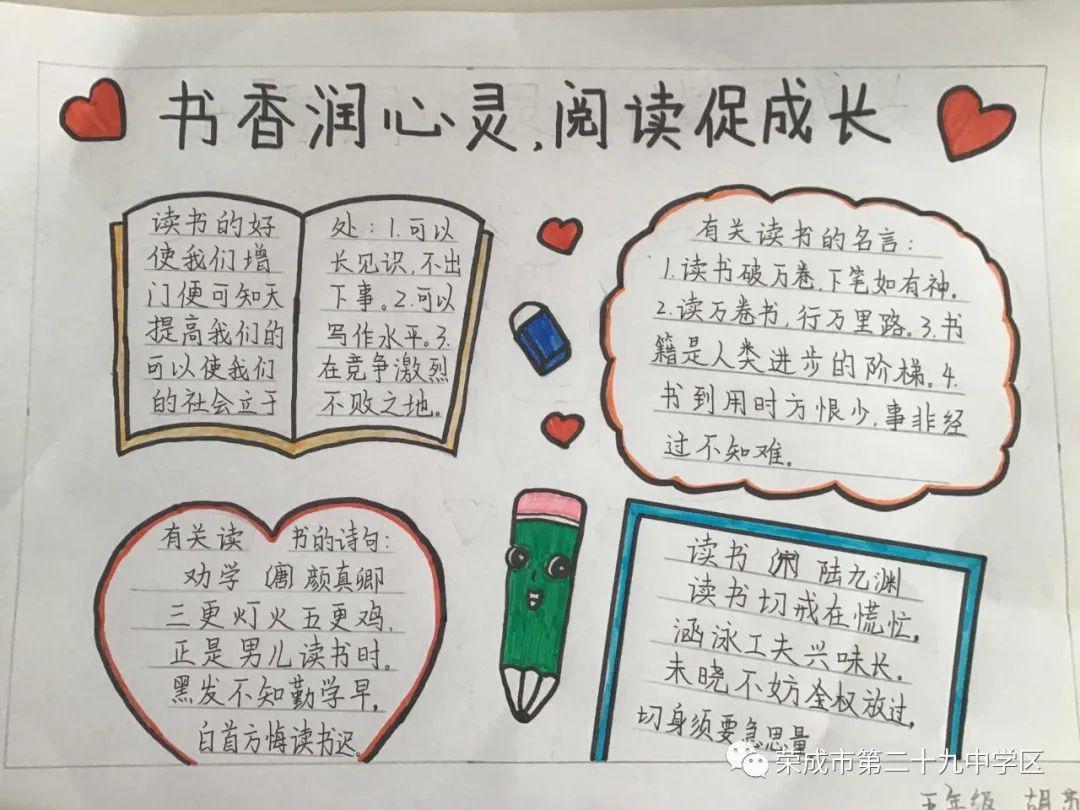 书香润心灵,阅读促成长
读书的好处：1.可以
使我们增长见识，不出
门便可知天下事。2.可以
提高我们的写作水平。3.
可以使我们在竞争激烈
的社会立于不败之地。
有关读书的名言：
1.读书破万卷，下笔如有神。
2.读万卷书，行万里路。3.书
籍是人类进步的阶梯。4.
书到用时方恨少，事非经
过不知难。
有关读书的诗句：
劝学（唐）颜真卿
三更灯火五更鸡，
正是男儿读书时。
黑发不知勤学早，
白首方悔读书迟。
读书（宋）陆九渊
读书切戒在慌忙，
涵泳工夫兴味长。
未晓不妨全权放过，
切身须要急思量
荣成市第二十九中学区
五年级 胡